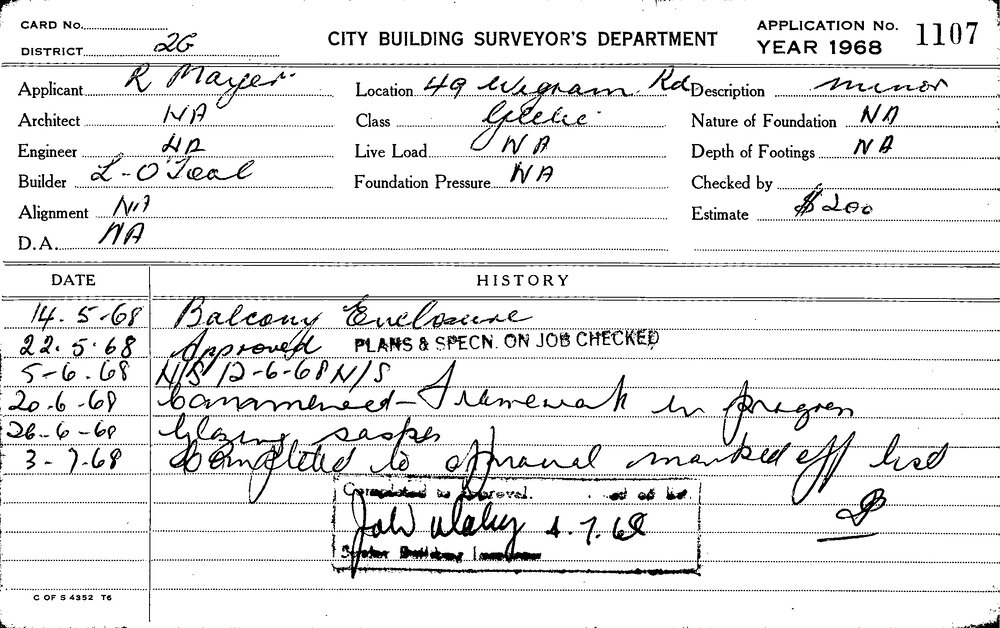 CARD No.
DISTRICT 2G
CITY BUILDING SURVEYOR'S DEPARTMENT
APPLICATION No. 1107
YEAR 1968
Applicant R Mayer
Location 49 Wigram Rd
Description minor
Architect NA
Class Glebe
Nature of Foundation NA
Engineer NA
Live Load NA
Depth of Footings NA
Builder L-O'Teal
Foundation Pressure NA
Checked by
Alignment NA
Estimate $200
D.A. NA
DATE HISTORY
14.5-68 Balcony Enclosure
22.5.68 Approved PLANS & SPECN. ON JOB CHECKED
5-6.68 N/S 12-6-68 N/S
20.6-68 Commenced - Framework in progress
26-6-68 Glazing
3-7.68 Completed to approval marked off list
Completed to approval.
4.7.68
Senior Building Inspector
C OF S 4352 T6